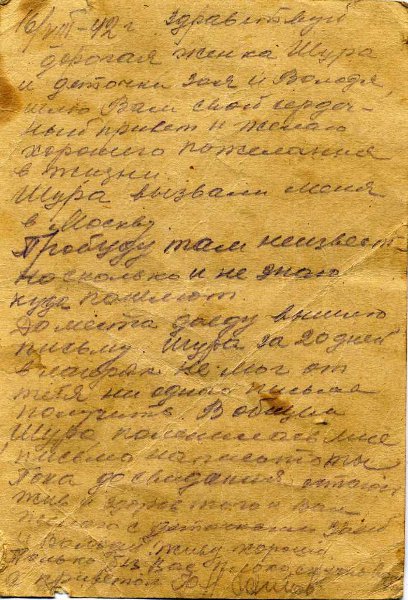 16/VIII-42 г Здравствуй
дорогая женка Шура
и деточки Зоя и Володя,
шлю Вам свой сердеч-
ный привет и желаю
хорошего пожелания
в жизни.
Шура вызвали меня
в Москву.
Пробуду там неизвест-
но сколько и не знаю
куда пошлют.
До места доеду вышлю
письмо Шура за 20 дней
не мог от
тебя ни одного письма
получить В общем
Шура поленилась мне
письмо написать ты
Пока до свидания
жив и здоров того и Вам
с деточками
живу хорошо
только без Вас
с приветом